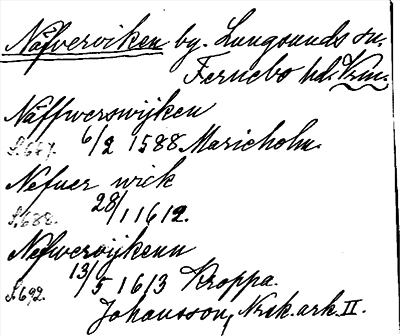 Näfverviken by. Lungsunds sn.
Fernebo hd. Vrm.
Näffwerswijken
S. 687. 6/2 1588. Marieholm.
Nefuer wick
S. 688. 28/1 1612.
Nefwerwijkenn
S. 692. 13/5 1613 Kroppa.
Johansson, Nrk. ark. II.